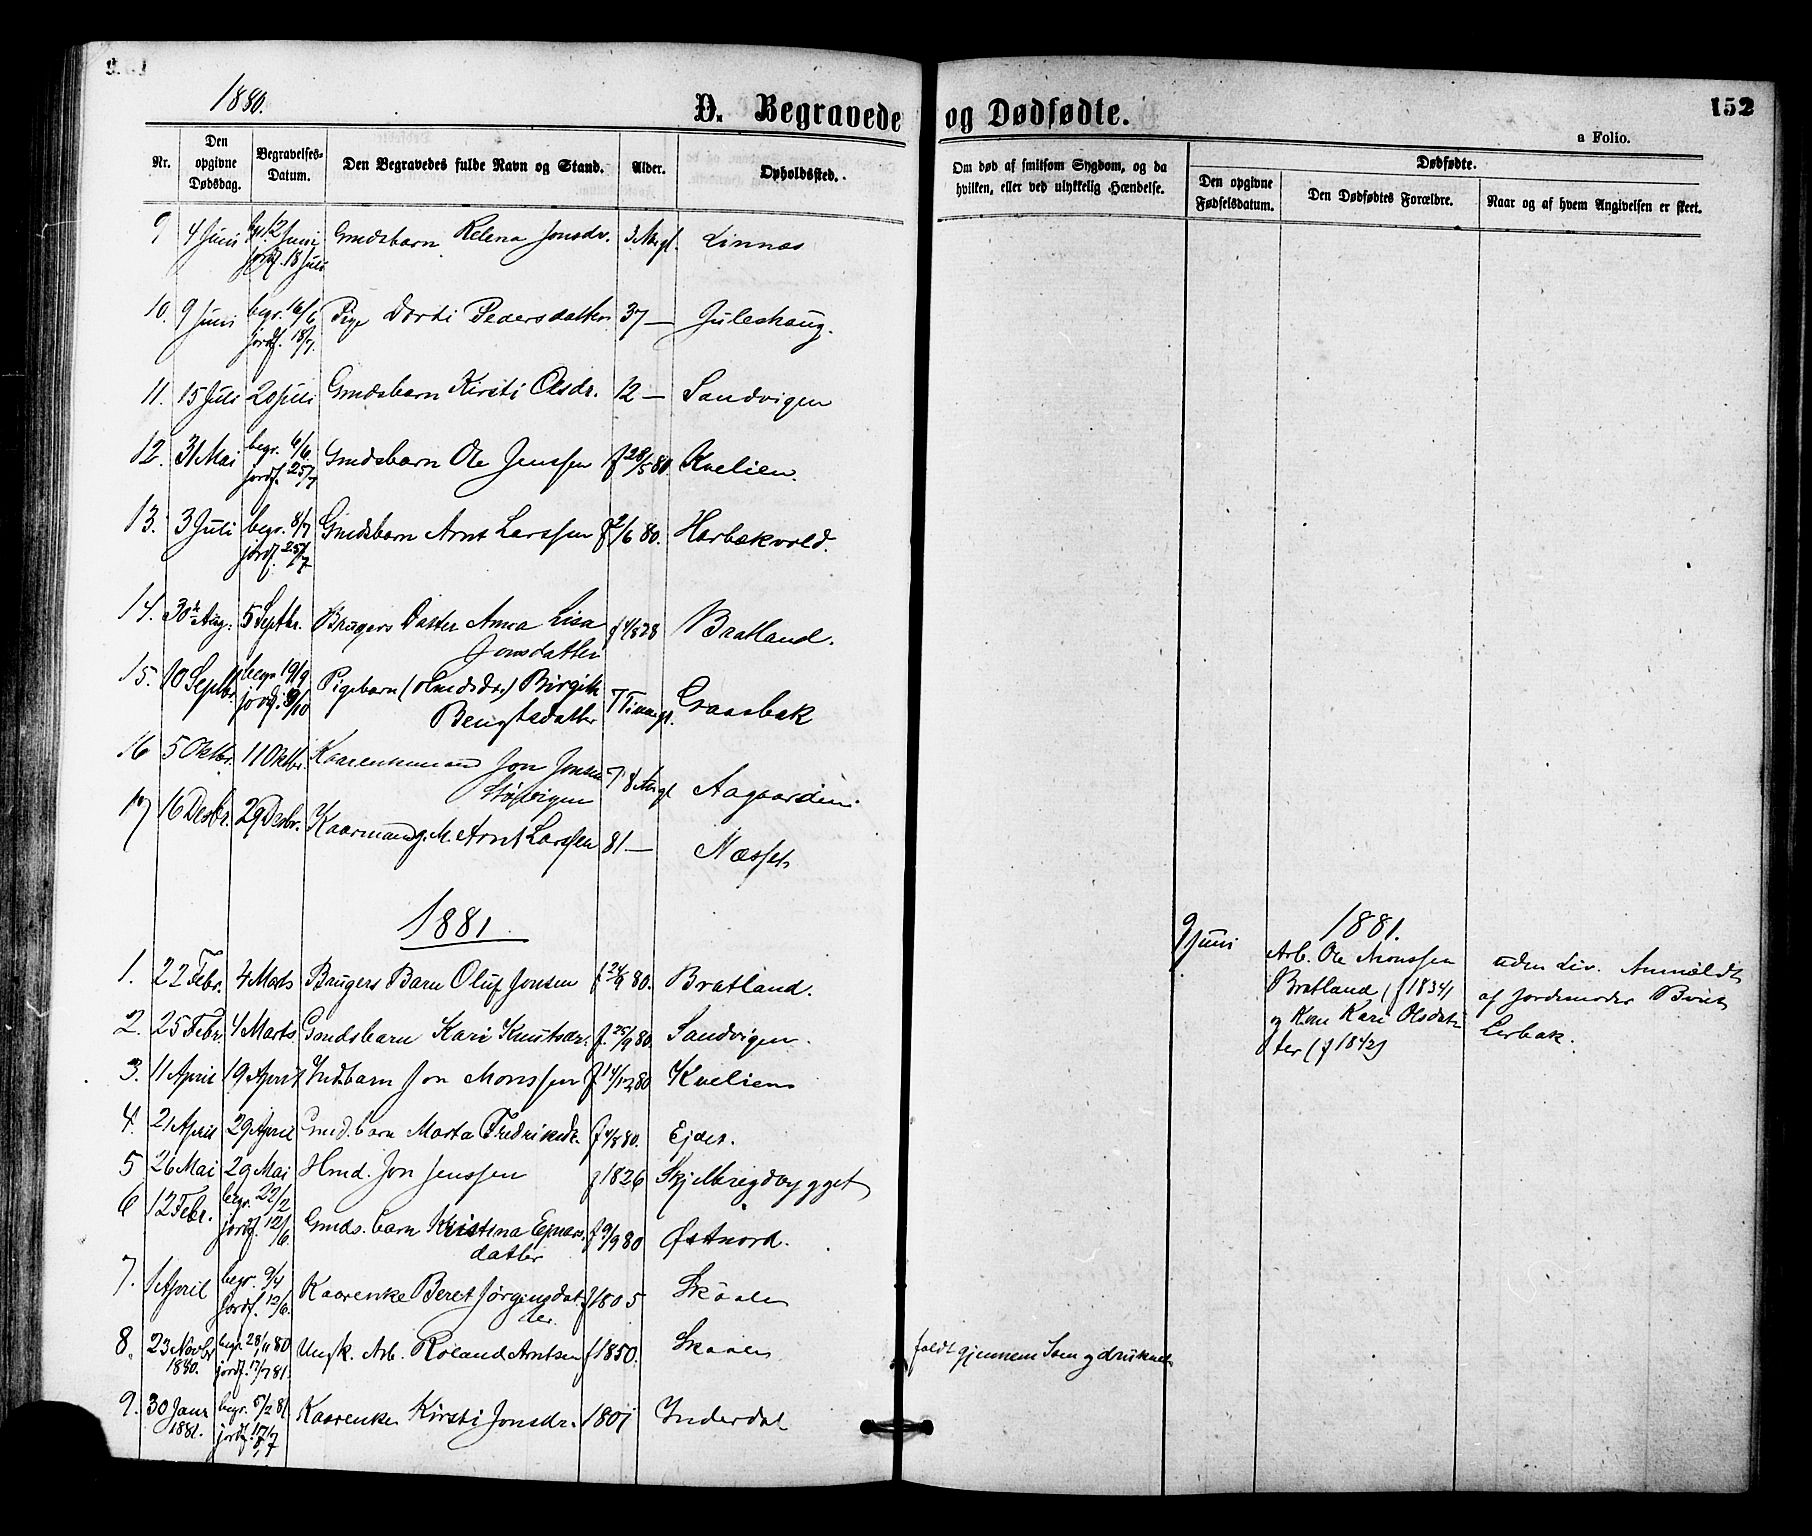 1880.
D. Begravede og Dødfødte.
152
a Folio.
Nr.
Den opgivne Dødsdag.
Begravelses-Datum.
Den Begravedes fulde Navn og Stand.
Alder.
Opholdssted.
Om død af smitsom Sygdom, og da hvilken, eller ved ulykkelig Hændelse.
Dødfødte.
Den opgivne Fødselsdatum.
Den Dødfødtes Forældre.
Naar og af hvem Angivelsen er skeet.
9 4 Juni 12 Juni Gmdsbarn Helena Jonsdr. Linnas
jordf. 18 Juli
10. 9 Juni begr. 16/6 Pige Dorti Pedersdatter 37 — Juleshaug.
jordf. 18/7.
11. 15 Juli 20 Juli Gmdsbarn Kirsti Olsdr. 12 — Sandvigen
12. 31 Mai begr. 6/6 Gmdsbarn Ole Jenssen f 28/5 80. Kvelien.
jordf. 25/7
13. 3 Juli begr. 8/7 Gmdsbarn Arnt Larssen f 2/6 80. Harbækvold.
jordf. 25/7
14. 30 Aug. 5 Septbr. Brugers Datter Anna Lisa f 4/8 28 Bratland.
Jonsdatter
15. 10 Septbr. begr. 19/9 Pigebarn Birgith Graasbak
jordf. /10 Bengtsdatter
16 5 Oktbr. 11 Oktbr. Kaarenkemand Jon Jonsen 78 Aargl Aagaarden
17 16 Decbr. 29 Decbr. Kaarmand g.M. Arnt Larssen 81 — Næsset
1881.
1. 22 Febr. 4 Marts Brugers Barn Oluf Jonsen f 24/9 80. Bratland.
2. 25 Febr. 4 Marts Gmdsbarn Kari Knutsdr. f. 25/9 80. Sandvigen.
3. 11 April 19 April Indbarn Jon Monssen f 14/12 80 Kvelien
4. 21 April 29 April Gmd.barn Marta Fredriksdr. f 4/8 80. Ejdet.
5 26 Mai 29 Mai Hmd. Jon Jenssen f 1826 Skjelbregdbygget
6 12 Febr. begr. 22/2 Gmds.barn Kristina Ejnars f 9/9 80 Østnord.
jordf. 12/6. datter
7. 1 April begr. 9/4 Kaarenke Beret Jørgensdat f 1805 Skaale
jordf. 12/6. ter.
8. 23 Novbr begr. 28/11 80 Ungk. Arb. Roland Arntsen f 1850. Skaale
1880. jordf. 17/7 81.
faldt gjennem Isen og druknede
9. 30 Janr begr. 5/2 81 Kaarenke Kirsti Jonsdr. 1801 Inderdal
1881. jordf. 17/7
1881.
9 Juni
Arb. Ole Monssen
Bratland (f 1834)
og Kone Kari Olsdat
ter (f 1842)
uden Liv. Anmeldt
af Jordemoder Beret
Lerbak.